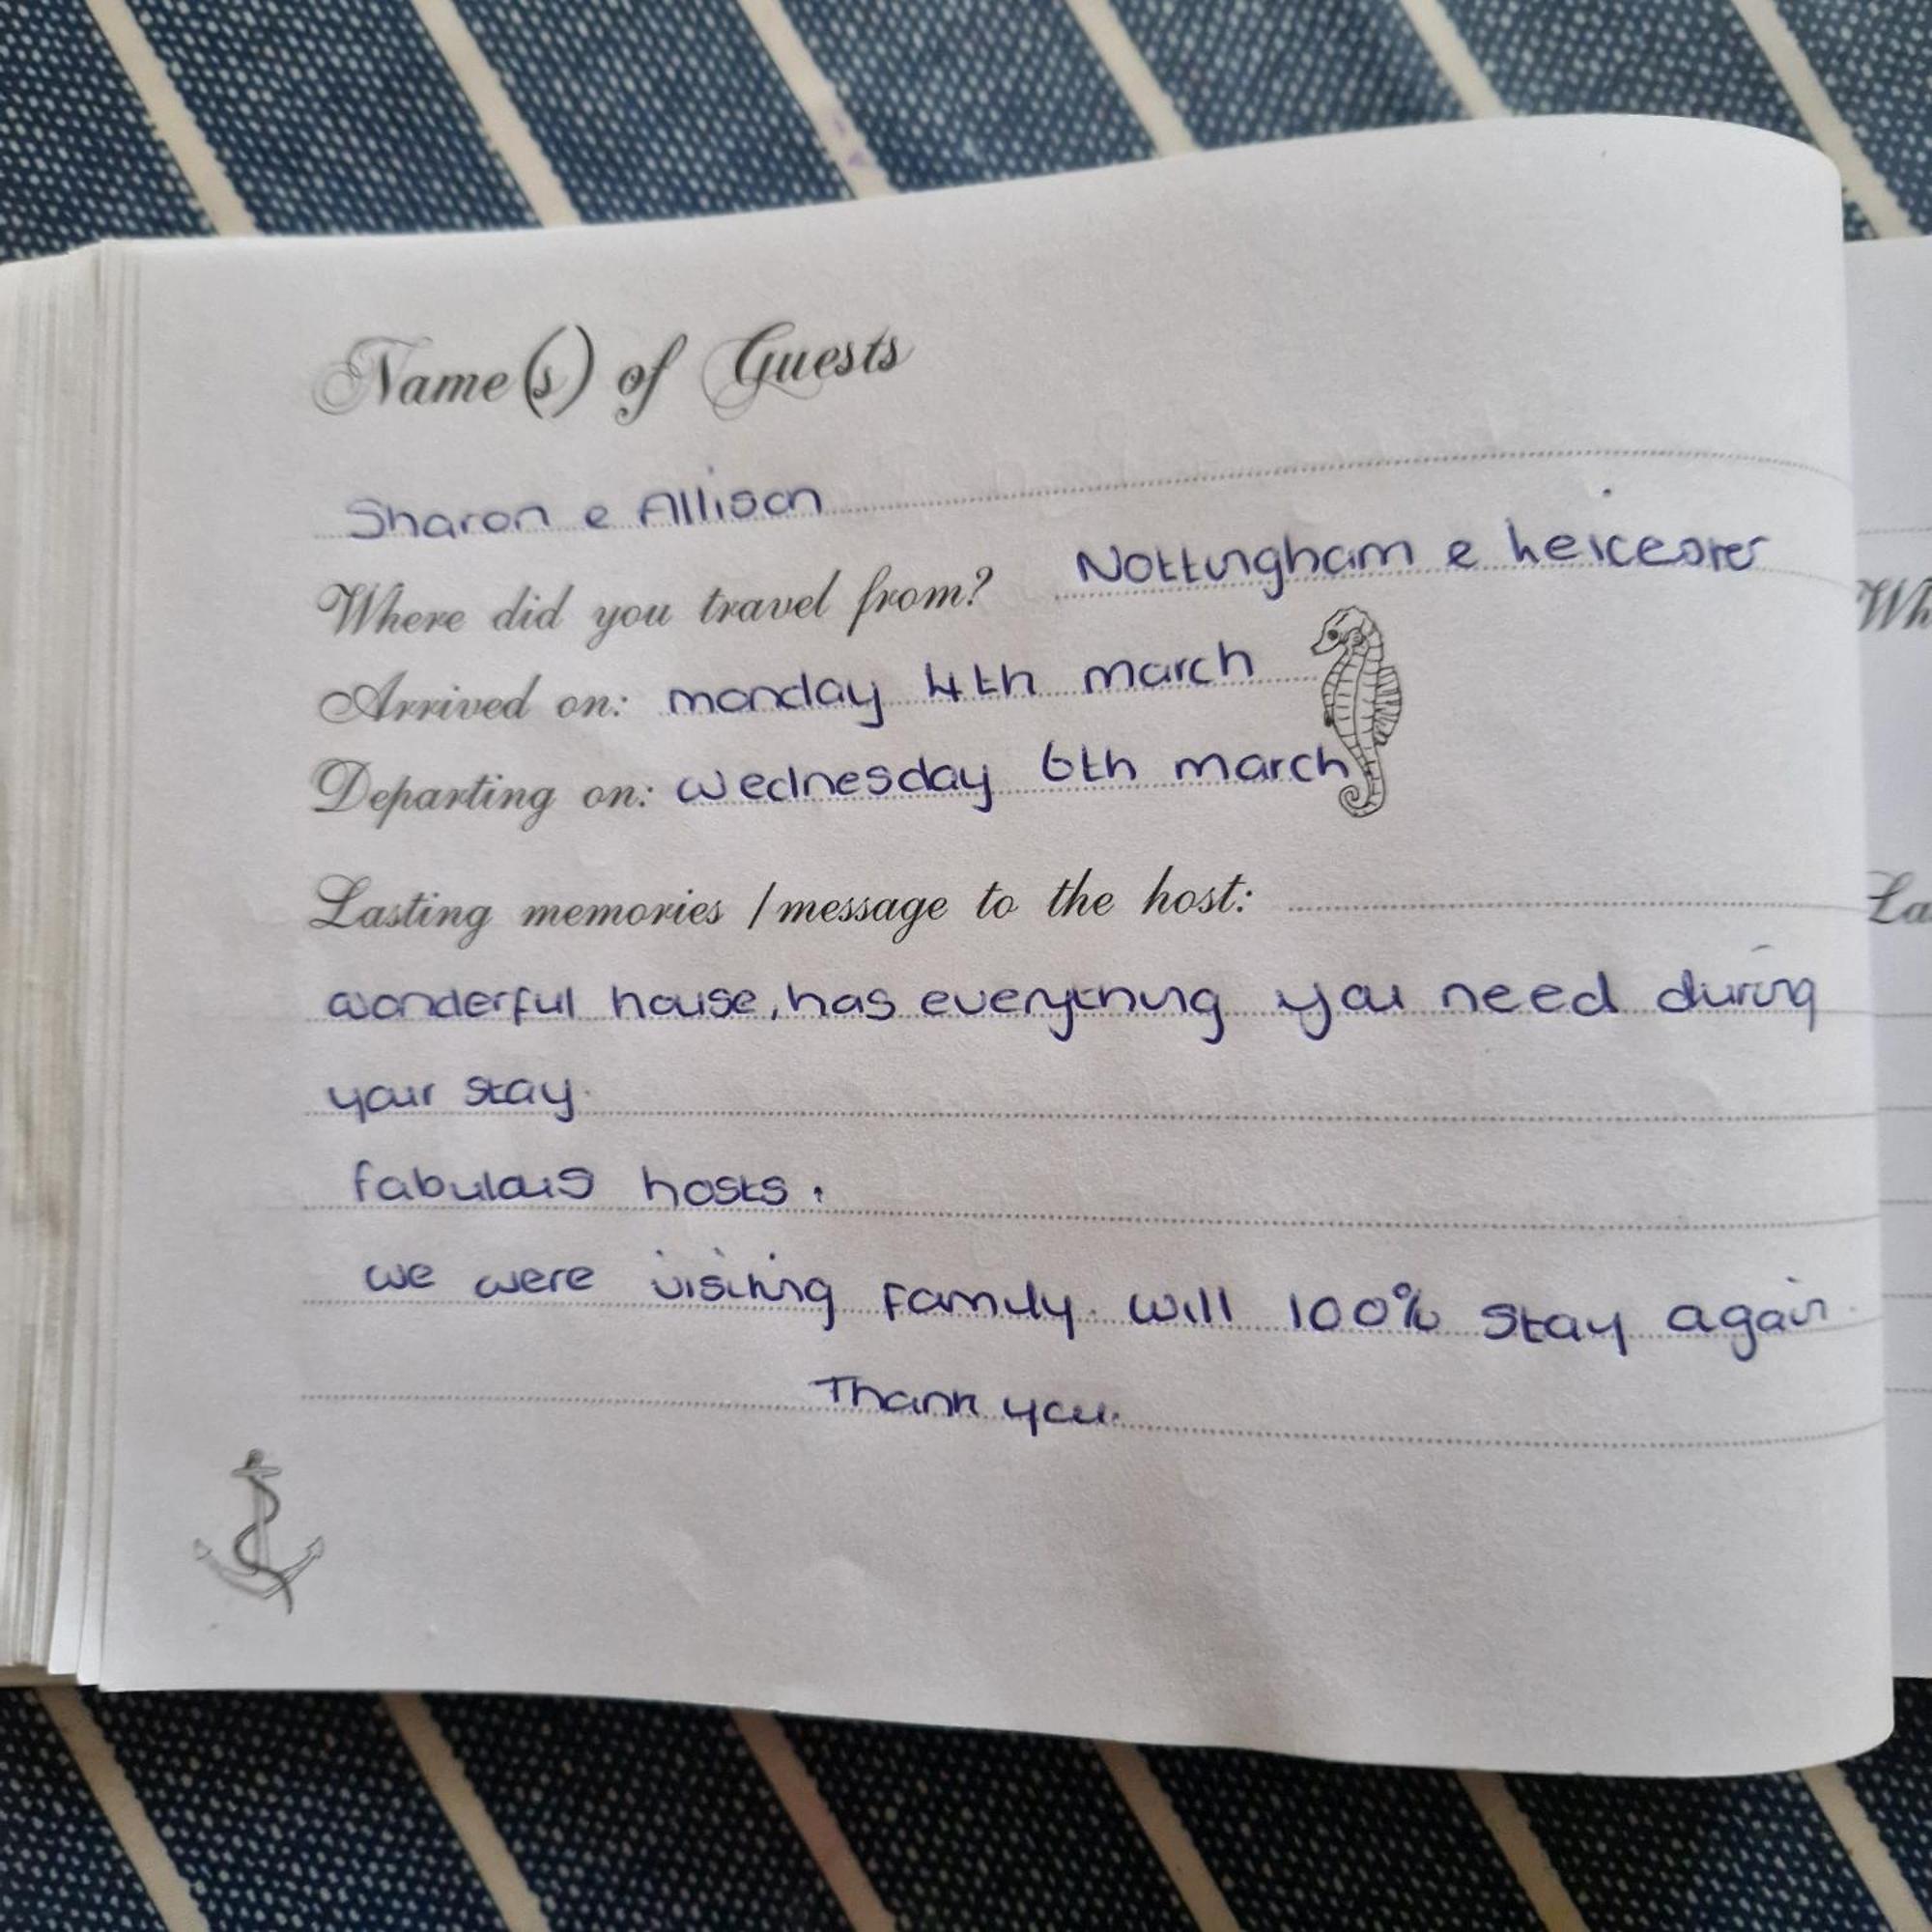 Name(s) of Guests
Sharon e Allison
Where did you travel from? Nottingham e Leicester
Wh
Arrived on: monday 4th march
Departing on: wednesday 6th march
Lasting memories / message to the host:
La
wonderful house, has everything you need during
your stay.
fabulous hosts.
we were visiting family. will 100% stay again.
Thank you.